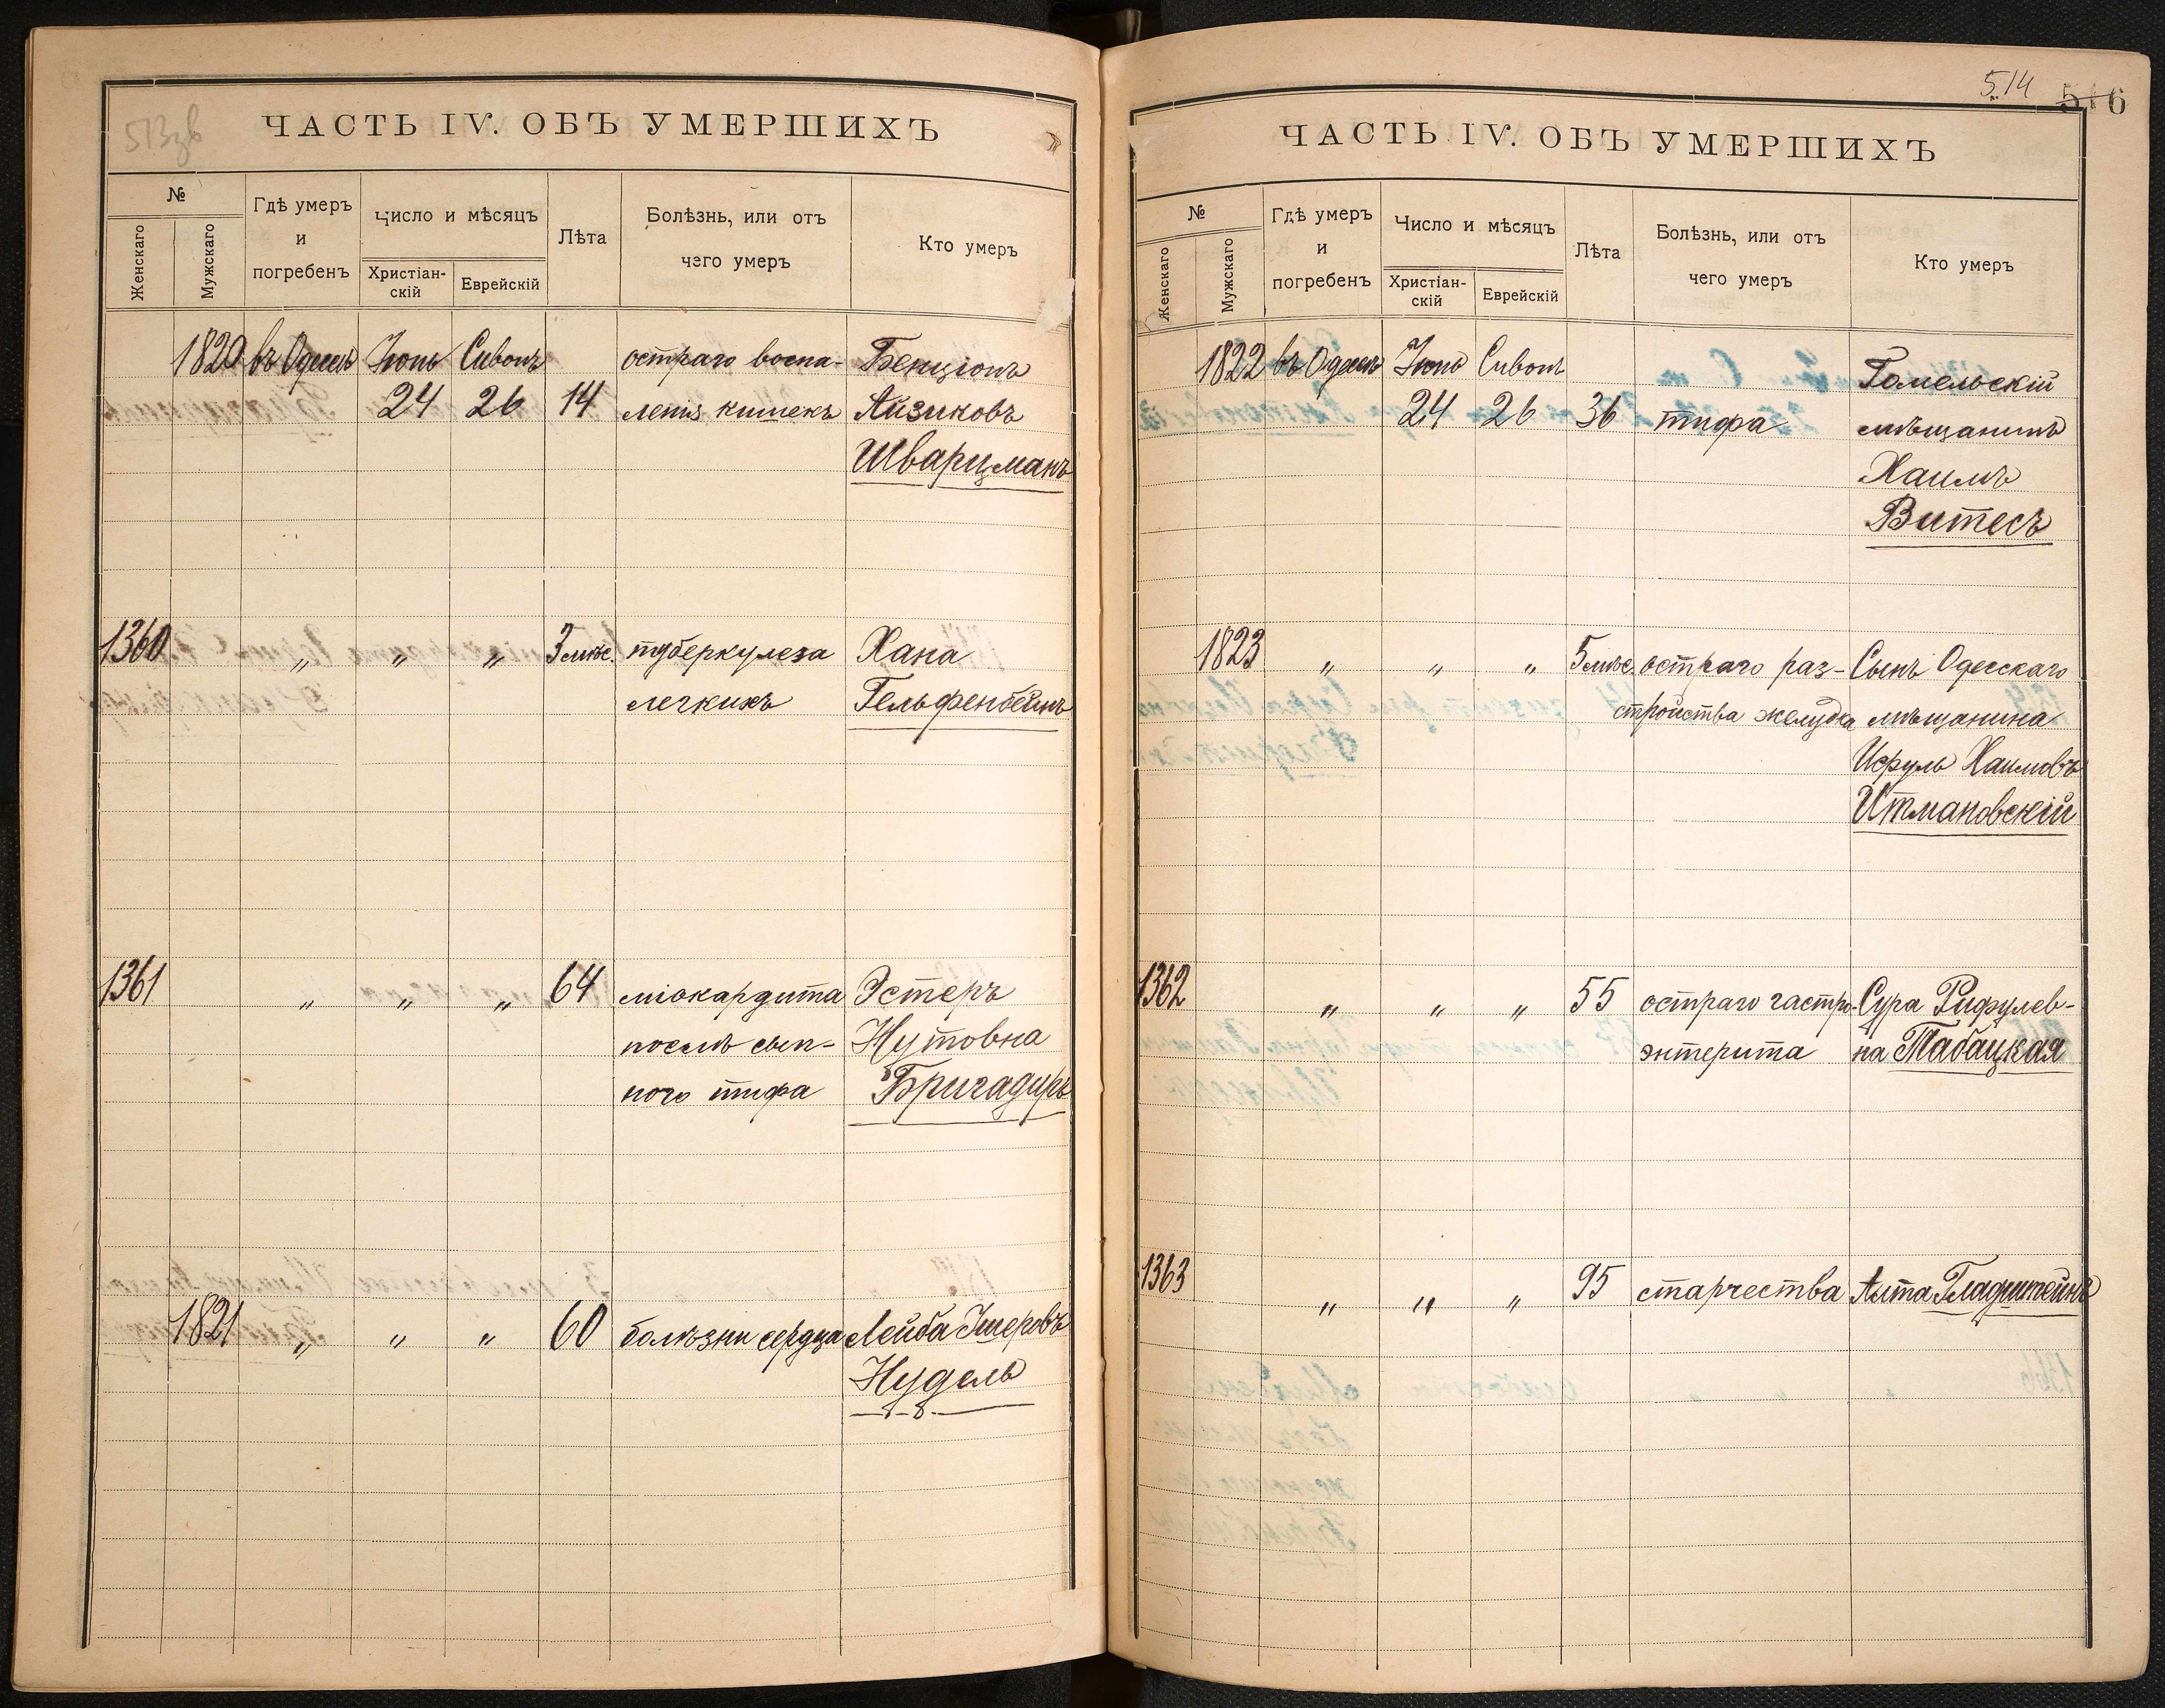 513зв
ЧАСТЬ IV. ОБЪ УМЕРШИХЪ
№
Женскаго
Мужскаго
Гдѣ умеръ
и
погребенъ
Число и мѣсяцъ
Христіан-
скій
Еврейскій
Лѣта
Болѣзнь, или отъ
чего умеръ
Кто умеръ
1820 въ Одессѣ Іюнь Сивонъ остраго воспа- Бенціонъ
24 26 14 ленія кишекъ Айзиковъ
Шварцманъ
1360 „ „ „ 3 мѣс. туберкулеза Хана
легкихъ Гельфенбейнъ
1361 „ „ „ 64 міокардита Эстеръ
послѣ сып- Нутовна
ного тифа Бригадиръ
1821 „ „ „ 60 болѣзни сердца Лейба Ушеровъ
Нудель
514
516
ЧАСТЬ IV. ОБЪ УМЕРШИХЪ
№
Женскаго
Мужскаго
Гдѣ умеръ
и
погребенъ
Число и мѣсяцъ
Христіан-
скій
Еврейскій
Лѣта
Болѣзнь, или отъ
чего умеръ
Кто умеръ
1822 въ Одессѣ Іюнь Сивонъ Гомельскій
24 26 36 тифа мѣщанинъ
Хаимъ
Витесъ
1823 „ „ „ 5 мѣс. остраго раз- Сынъ Одесскаго
стройства желудка мѣщанина
Исруль Хаимовъ
Итмановскій
1362 „ „ „ 55 остраго гастро- Сура Рифулев-
энтерита на Табацкая
1363 „ „ „ 95 старчества Алта Гладштейнъ